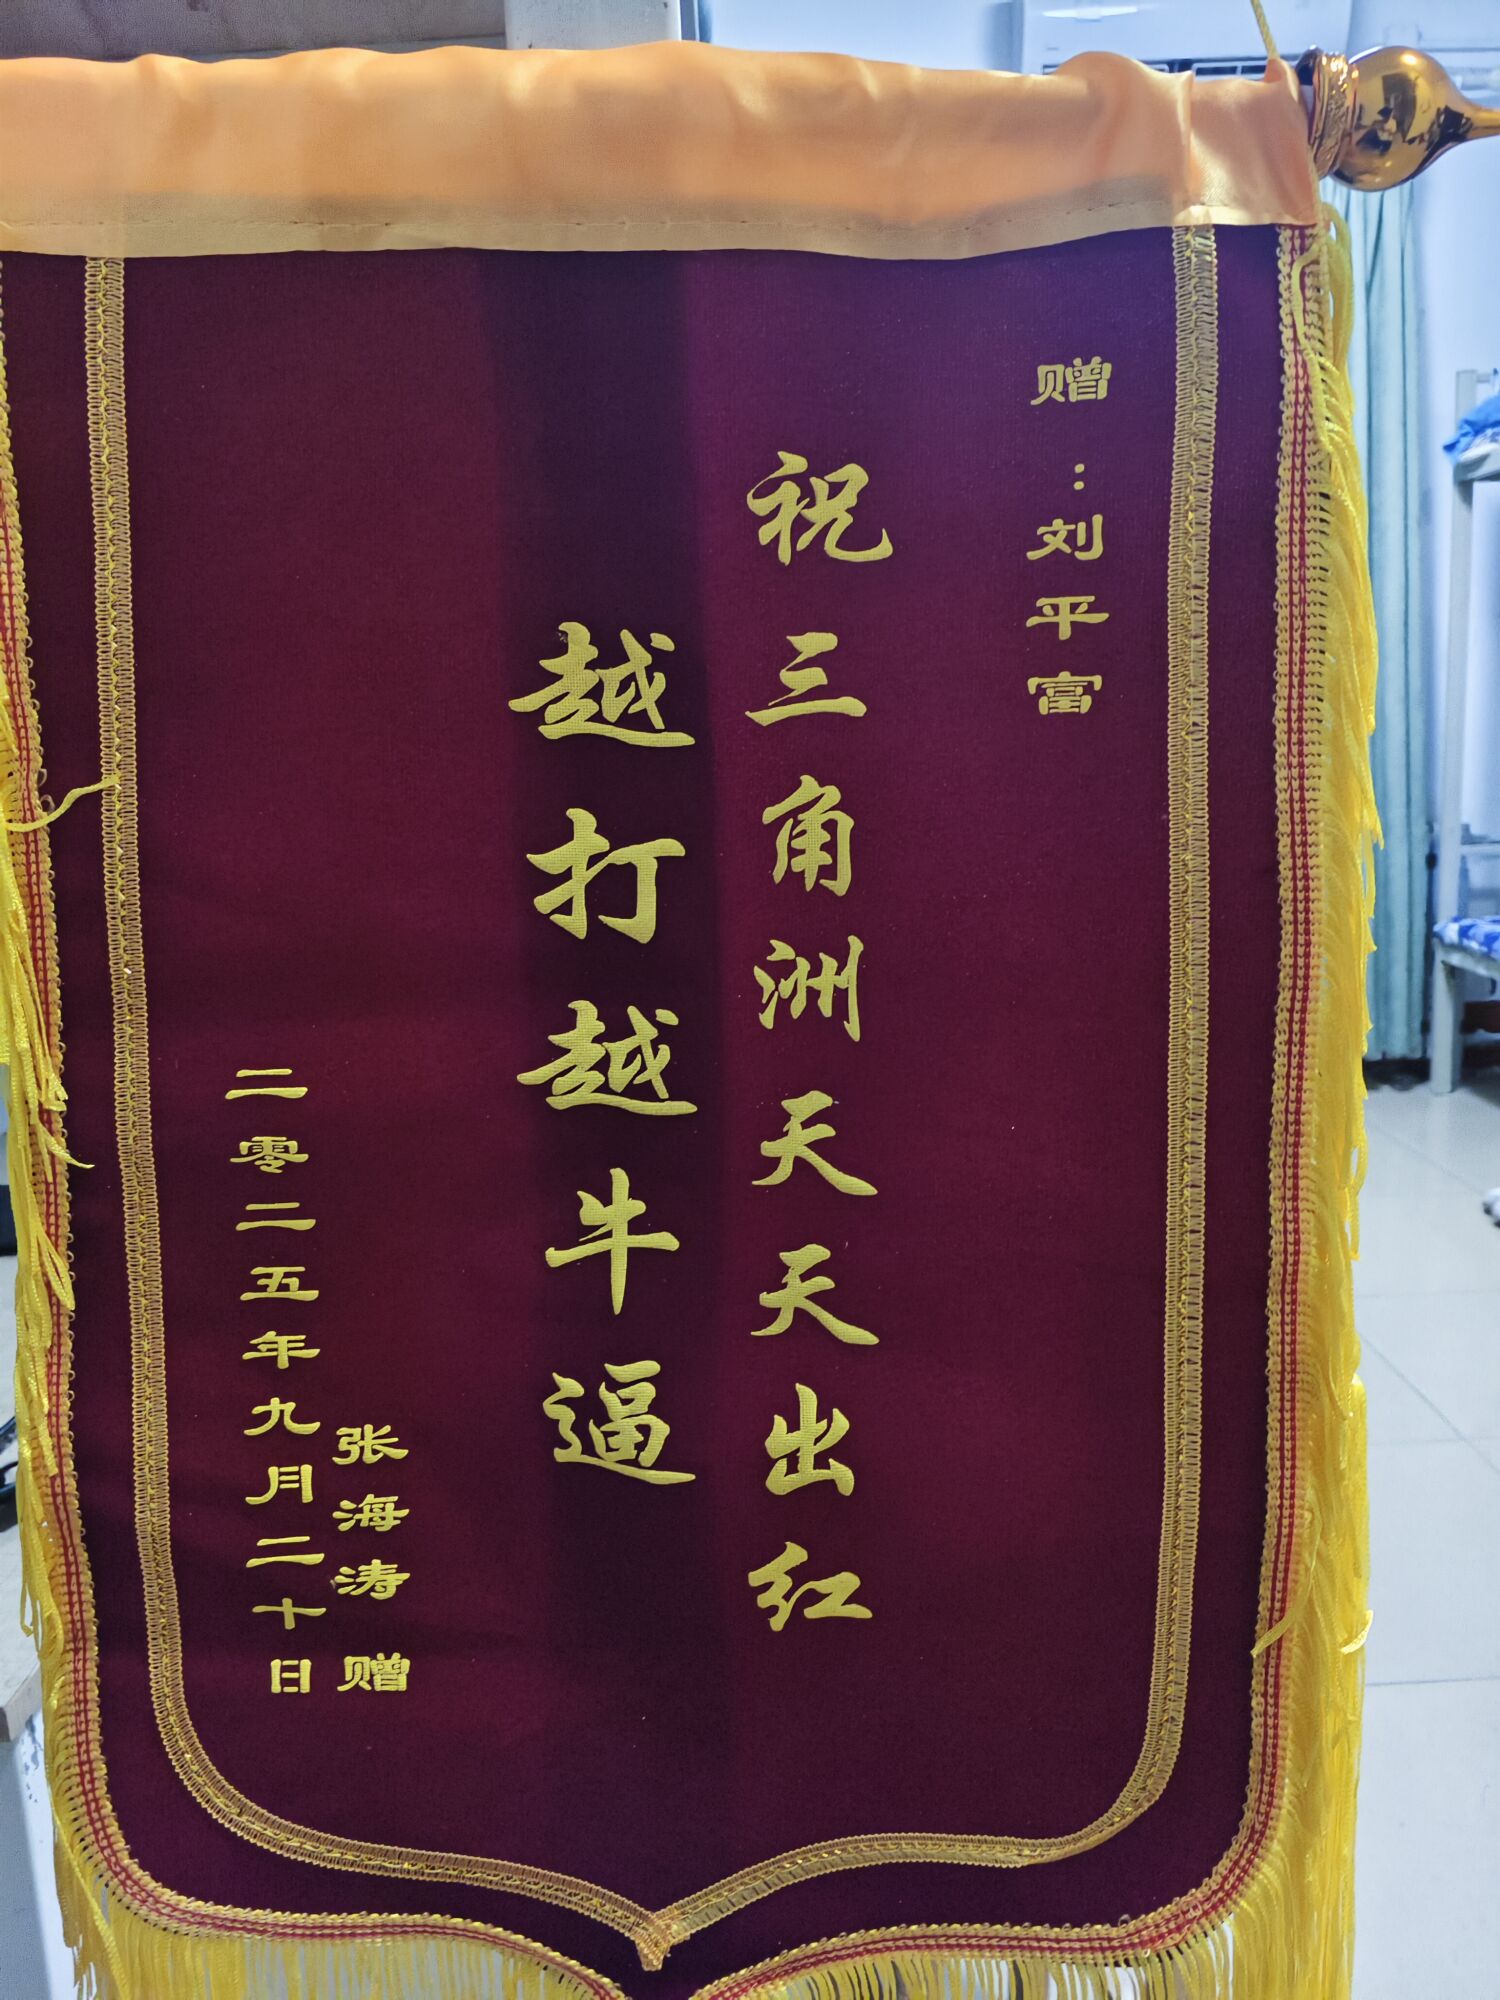 赠：刘平富
祝三角洲天天出红
越打越牛逼
张海涛 赠
二零二五年九月二十日